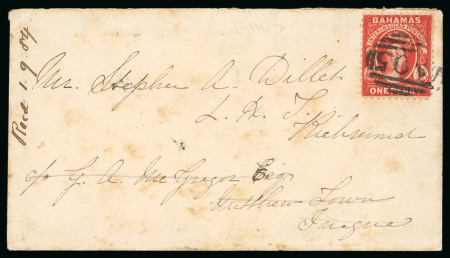 BAHAMAS
INTERINSULAR POSTAGE
ONE
Recd 1.9.84
Mr. Stephen A. Dillet
Richmond
c/o G. A. McGregor Esqr
Matthew Town
Inagua